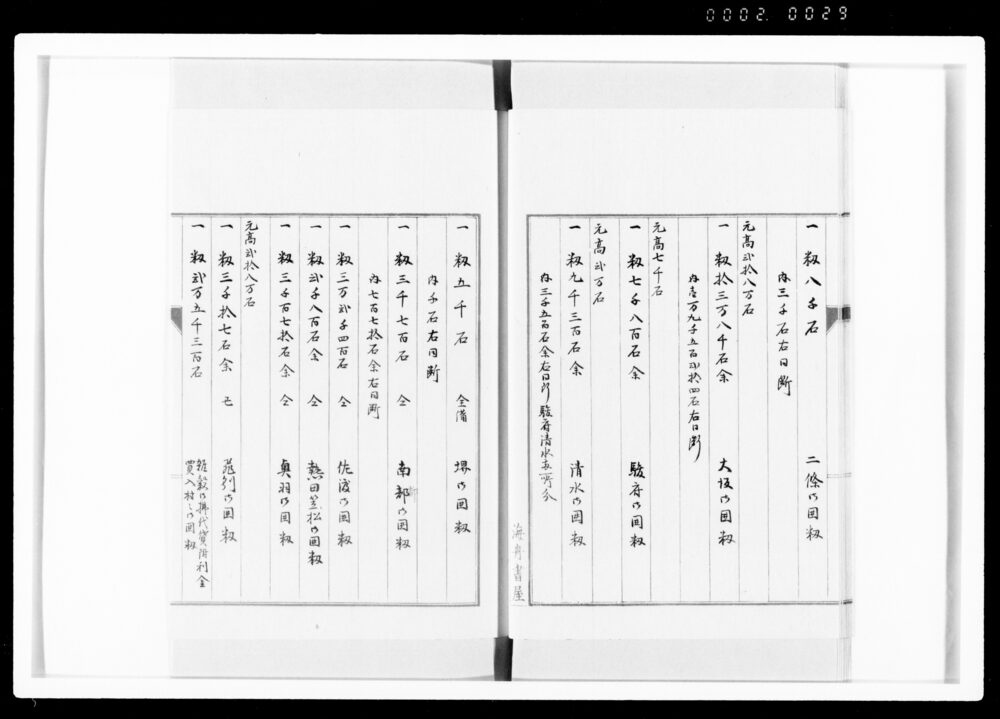 0002. 0029
一 籾八千石 二條御囲籾
内三千石右同断
元高弐拾八万石
一 籾拾三万八千石余 大坂御囲籾
内壱万九千五百弐拾四石右同断
元高七千石
一 籾七千八百石 駿府御囲籾
元高弐万石
一 籾九千三百石余 清水御囲籾
内三千五百石余右同断駿府清水両所分
海舟書屋
一 籾五千石 全備 堺御囲籾
内千石右同断
一 籾三千七百石 仝 南部御囲籾
内七百七拾石余右同断
一 籾三万弐千四百石 仝 佐渡御囲籾
一 籾弐千八百石余 仝 熱田笠松御囲籾
一 籾三千百七拾石余 仝 奥羽御囲籾
元高弐拾八万石
一 籾三千拾七石余 御囲籾
一 籾弐万五千三百石 雑穀御払代貸附利金
買入村々御囲籾